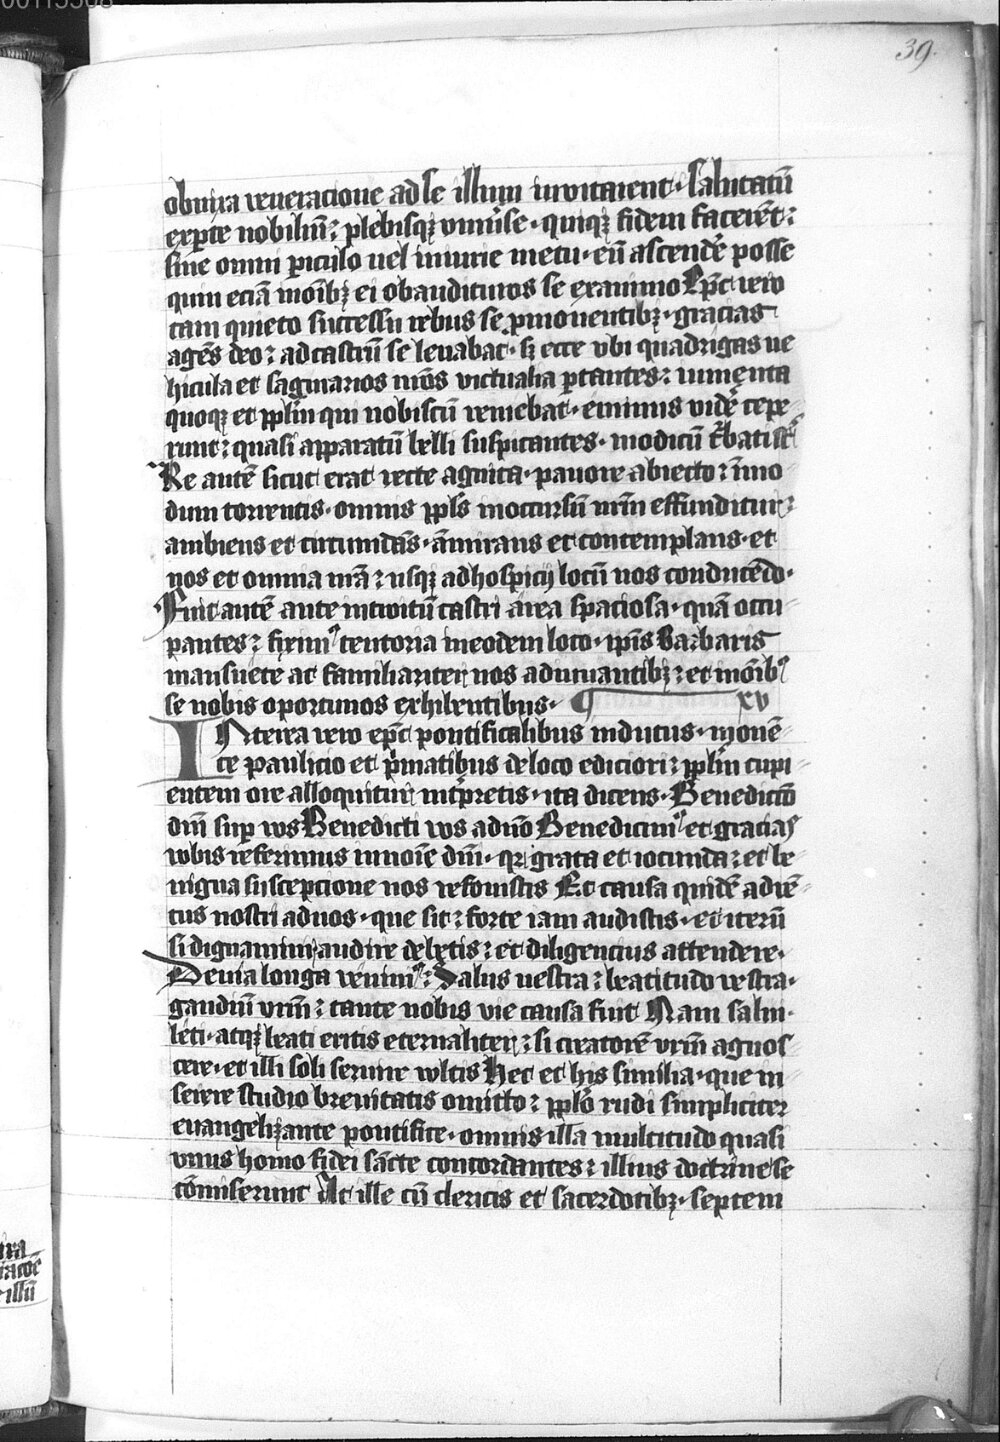 00115508
39.
obnixa veneracione ad se illum invitarent. salutatū
exp̱te nobiliū: plebisqȝ vniuˀse. quiqȝ fidem facerēt:
sine omni ꝑiculo uel iniurie metu. eū ascendē posse
quin eciā moībȝ ei obauditmos se exanimo Ep̄c vero
tam quieto successu rebus se ꝓmouentibȝ. gracias
agēs deo: ad castrū se levabat. sȝ ecce vbi quadrigas ve
hicula et saginarios nr̄os victualia ꝑtantes: iumenta
quoqȝ et pplm̄ qui nobiscū veniebat. eminus vidē cepe
runt: quasi apparatū belli suspicantes. modicū tˀbati sˀt
Re autē sicut erat recte agnita. pavore abiecto: ī mo
dum torrentis. omnis ppl̄s in occursū nr̄m effunditur:
ambiens et circumdās. āmirans et contemplans. et
nos et omnia nr̄a: usqȝ ad hospicij locū nos conducēdo.
Fuit autē ante introitū castri area spaciosa. quā occu
pantes: fiximˀ tentoria in eodem loco. ip̄is Barbaris
mansuete ac familiariter nos adiuvantibȝ: et in oībˀ
se nobis oportunos exhibentibus. ¶ xv
Interea vero ep̄c pontificalibus indutus. monē
te paulicio et pˀmatibus de loco ediciori: pplm̄ cupi
entem ore alloquitur intˀpretis. ita dicens. Benedictō
dn̄i sup̱ vos Benedicti vos a dn̄o Benedicimˀ et gracias
vobis referimus in noīe dn̄i. qꝛ grata et iocunda: et be
nigna susceptione nos refovistis Et causa quidē advē
tus nostri ad uos. que sit: forte iam audistis. et iterū
si dignamini. audire debetis: et diligencius attendere.
De via longa venimˀ: Salus uestra: beatitudo vestra.
gaudiū vrm̄: tante nobis vie causa fuit Nam salui.
leti. atqȝ beati eritis eternaliter: si creatorē vrm̄ agnos
cere. et illi soli servire vultis Hec et his similia. que in
serere studio brevitatis omitto: pplo rudi simpliciter
evangelizante pontifice. omnis illa multitudo quasi
vnus homo fidei sācte concordantes: illius doctrine se
cōmiserunt At ille cū clericis et sacerdotibȝ. septem